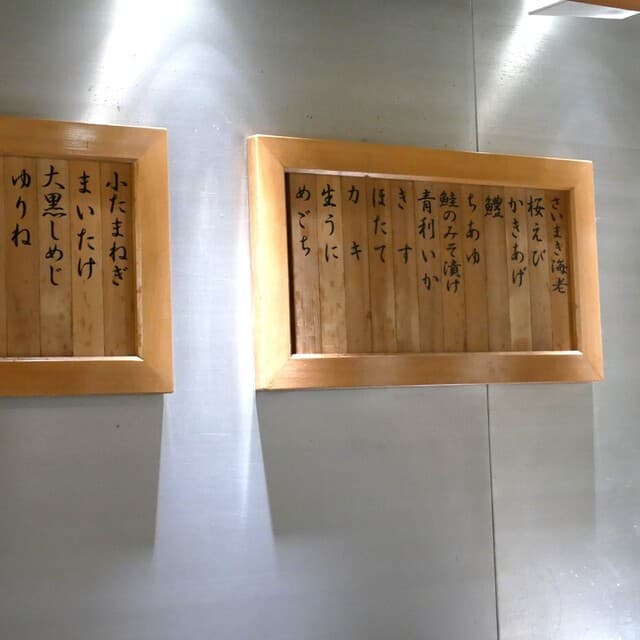 さいまき海老
桜えび
かきあげ
鱧
ちあゆ
鮭のみそ漬け
青利いか
きす
ほたて
カキ
生うに
めごち
小たまねぎ
まいたけ
大黒しめじ
ゆりね